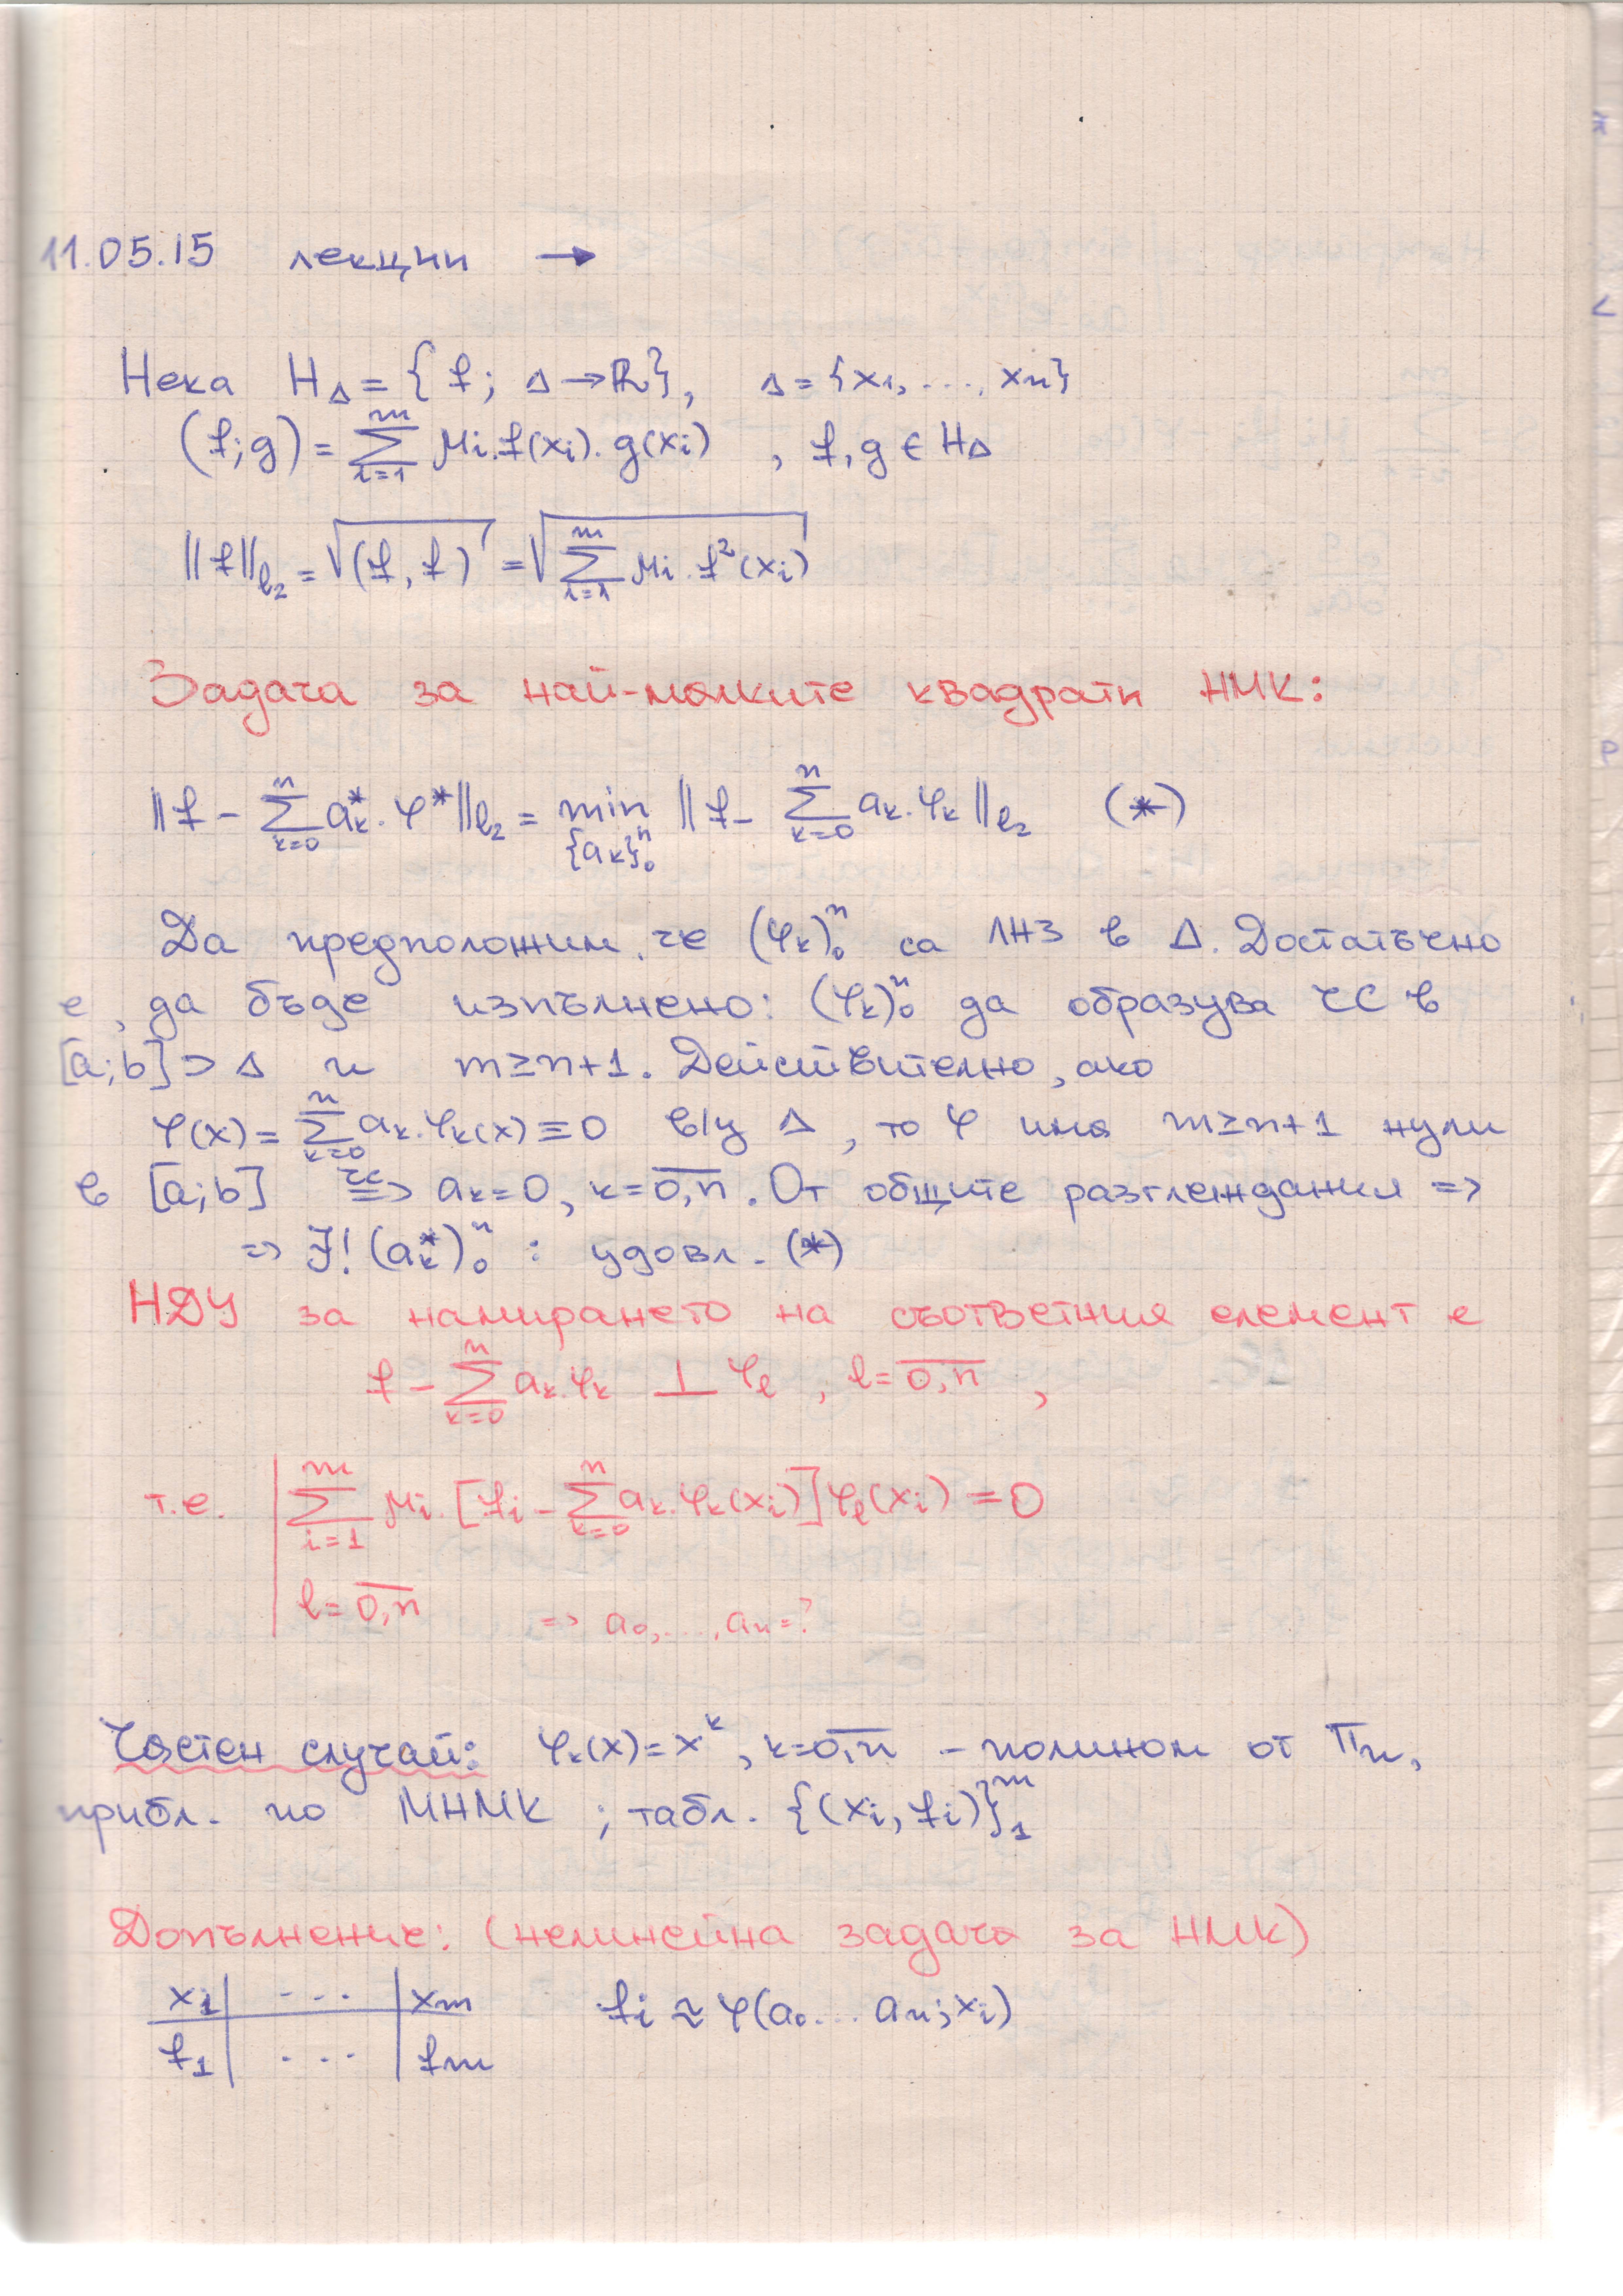 11.05.15 лекции →
Нека H_Δ = {f; Δ → ℝ}, Δ = {x₁, ..., xₘ}
(f; g) = Σ_{i=1}^{m} μᵢ.f(xᵢ).g(xᵢ) , f, g ∈ H_Δ
||f||_{ℓ₂} = √(f, f) = √(Σ_{i=1}^{m} μᵢ.f²(xᵢ))
Задача за най-малките квадрати НМК:
||f - Σ_{k=0}^{n} a*ₖ.φ*||_{ℓ₂} = min_{{aₖ}₀ⁿ} ||f - Σ_{k=0}^{n} aₖ.φₖ||_{ℓ₂} (*)
Да предположим, че (φₖ)₀ⁿ са ЛНЗ в Δ. Достатъчно
е, да бъде изпълнено: (φₖ)₀ⁿ да образува ЧС в
[a;b] ⊃ Δ и m ≥ n+1. Действително, ако
φ(x) = Σ_{k=0}^{n} aₖ.φₖ(x) ≡ 0 в/у Δ, то φ има m ≥ n+1 нули
в [a;b] ⇒^{ЧС} aₖ = 0, k = \overline{0,n}. От общите разглеждания =>
=> ∃! (a*ₖ)₀ⁿ : удовл. (*)
НДУ за намирането на съответния елемент е
f - Σ_{k=0}^{n} aₖ.φₖ ⊥ φ_ℓ , ℓ = \overline{0,n} ,
т.е. | Σ_{i=1}^{m} μᵢ.[fᵢ - Σ_{k=0}^{n} aₖ.φₖ(xᵢ)]φ_ℓ(xᵢ) = 0
ℓ = \overline{0,n} => a₀, ..., aₙ = ?
Частен случай: φₖ(x) = xᵏ, k = \overline{0,n} - полином от Πₙ,
прибл. по МНМК ; табл. {(xᵢ, fᵢ)}₁ᵐ
Допълнение: (нелинейна задача за НМК)
x₁ | ... | xₘ fᵢ ≈ φ(a₀...aₙ; xᵢ)
f₁ | ... | fₘ